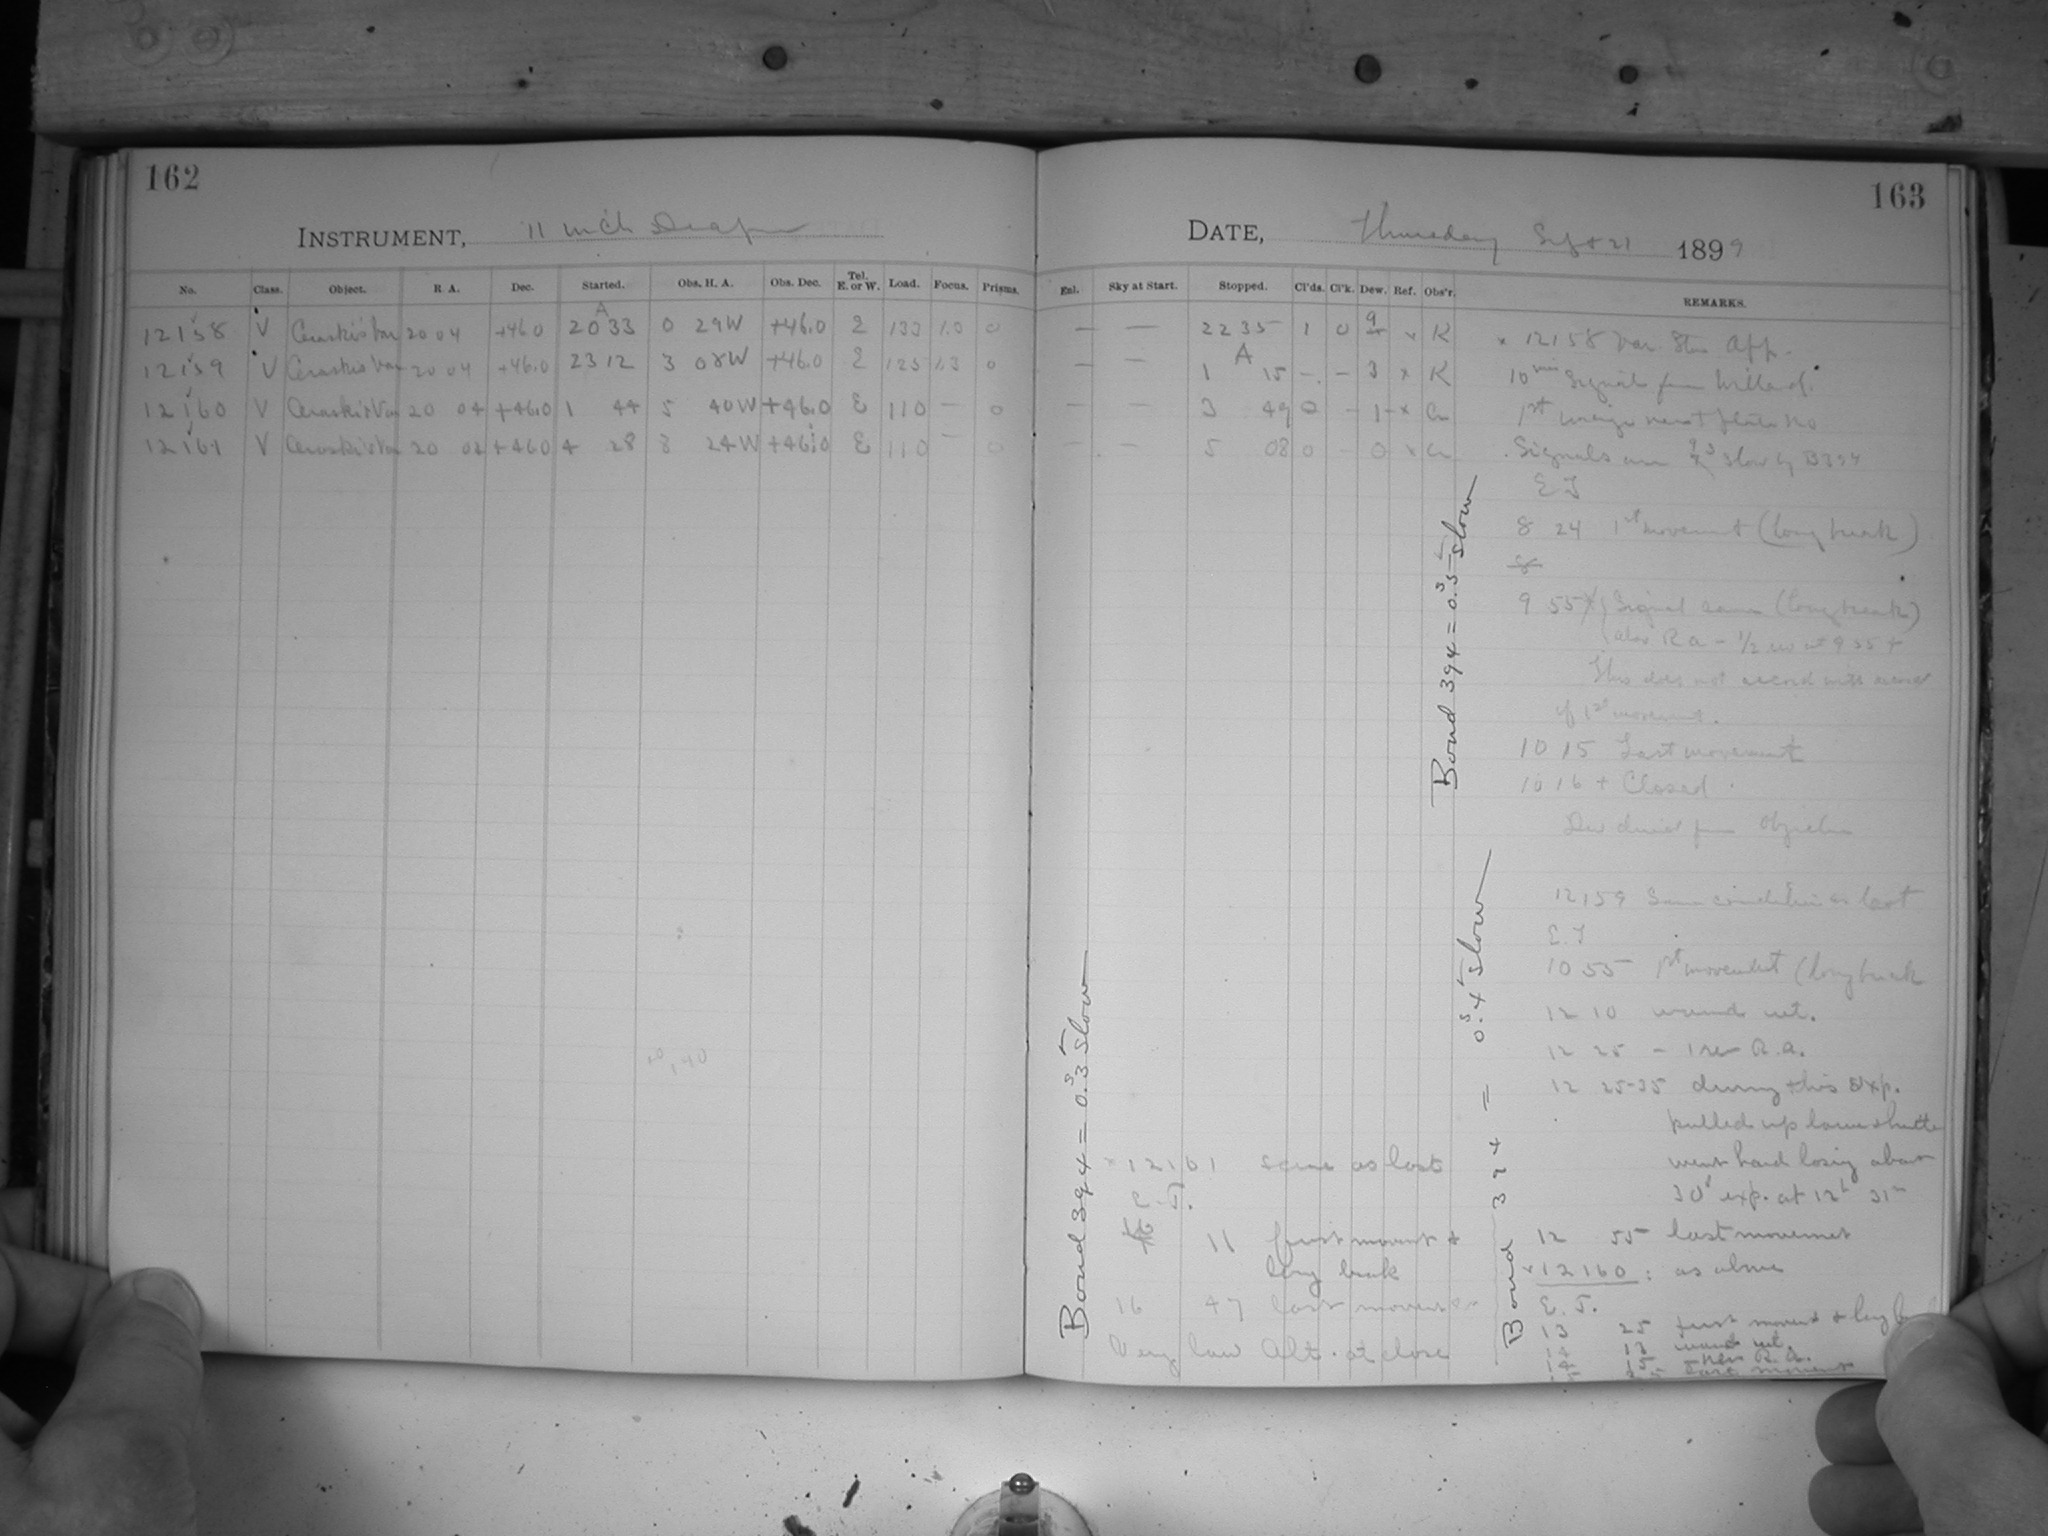 162
INSTRUMENT, 11 inch Draper
No. Class. Object. R A. Dec. Started. Obs. H. A. Obs. Dec. Tel. E. or W. Load. Focus. Prisms.
A
12158 V Ceraski's Var 20 04 +46.0 20 33 0 29W +46.0 E 133 1.0 0
12159 V Ceraski's Var 20 04 +46.0 23 12 3 08W +46.0 E 125 1.3 0
12160 V Ceraski's Var 20 04 +46.0 1 44 5 40W +46.0 E 110 — 0
12161 V Ceraski's Var 20 02 +46.0 4 28 8 24W +46.0 E 110 — 0
163
DATE, Thursday Sept 21 1899
Enl. Sky at Start. Stopped. Cl'ds. Cl'k. Dew. Ref. Obs'r. REMARKS.
— — 22 35 1 0 x K
A
— — 1 15 - - 3 x K
— — 3 49 0 - 1 x
— — 5 08 0 - 0 x
x 12158 Var. app.
10 min signals from Willard.
1st plate no
Signals slow by B 394
E T
8 24 1st movement (long break)
8
9 55 Signal same (long break)
also R a - 1/2 at 9 55 +
This does not accord with
of 1st movement.
10 15 Last movement
10 16 + Closed
from Objective
Bond 394 = 0.s3 slow
12159 Same condition as last
E. T
10 55 1st movement (long break
12 10 wound wt.
12 25 - 1 rev R.A.
12 25-35 during this exp.
pulled up lower shutter
went hard losing about
30s exp. at 12h 31m
12 55 last movement
x 12160 : as above
E. T.
13 25 first movement & long
14 13 wound wt.
14 15 R.A.
last movement
Bond 394 = 0.s4 slow
Bond 394 = 0.s3 slow
x 12161 same as last
E. T.
16 11 first movement &
long break
16 47 last movement
Very low Alt. at close